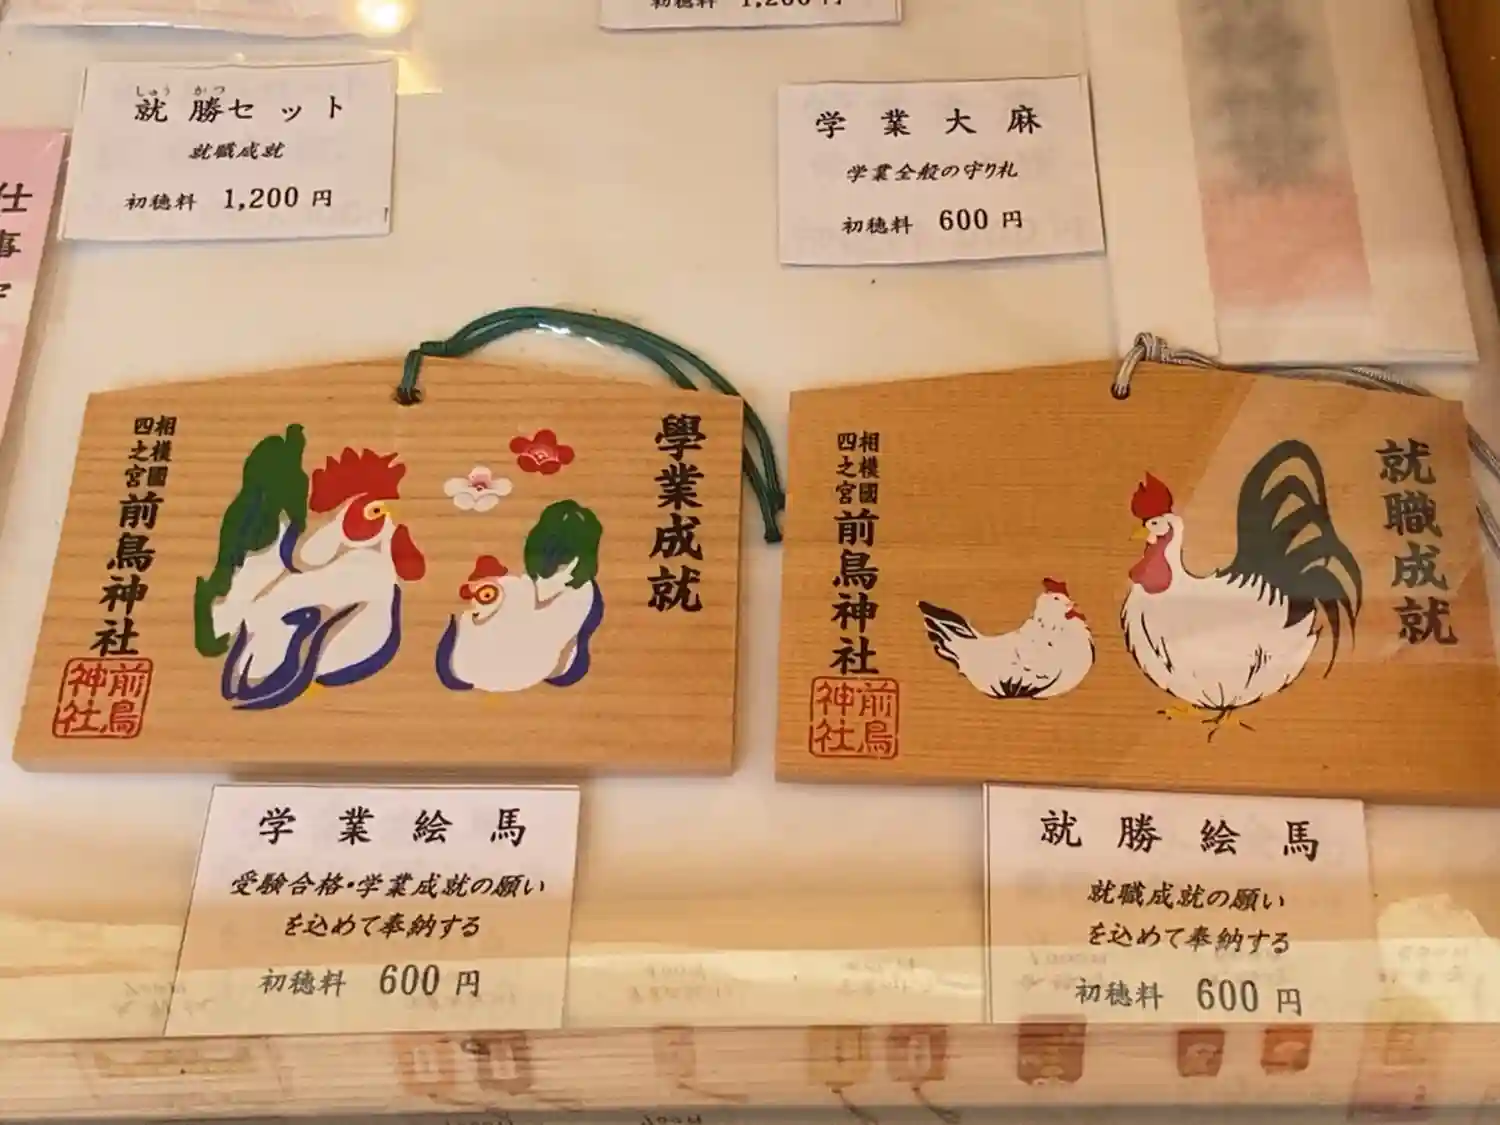 初穂料 1,200 円
しゅう かつ
就勝セット
就職成就
初穂料 1,200 円
学業大麻
学業全般の守り札
初穂料 600 円
仕事守
學業成就
相模國
四之宮
前鳥神社
前鳥
神社
就職成就
相模國
四之宮
前鳥神社
前鳥
神社
学業絵馬
受験合格・学業成就の願い
を込めて奉納する
初穂料 600 円
就勝絵馬
就職成就の願い
を込めて奉納する
初穂料 600 円